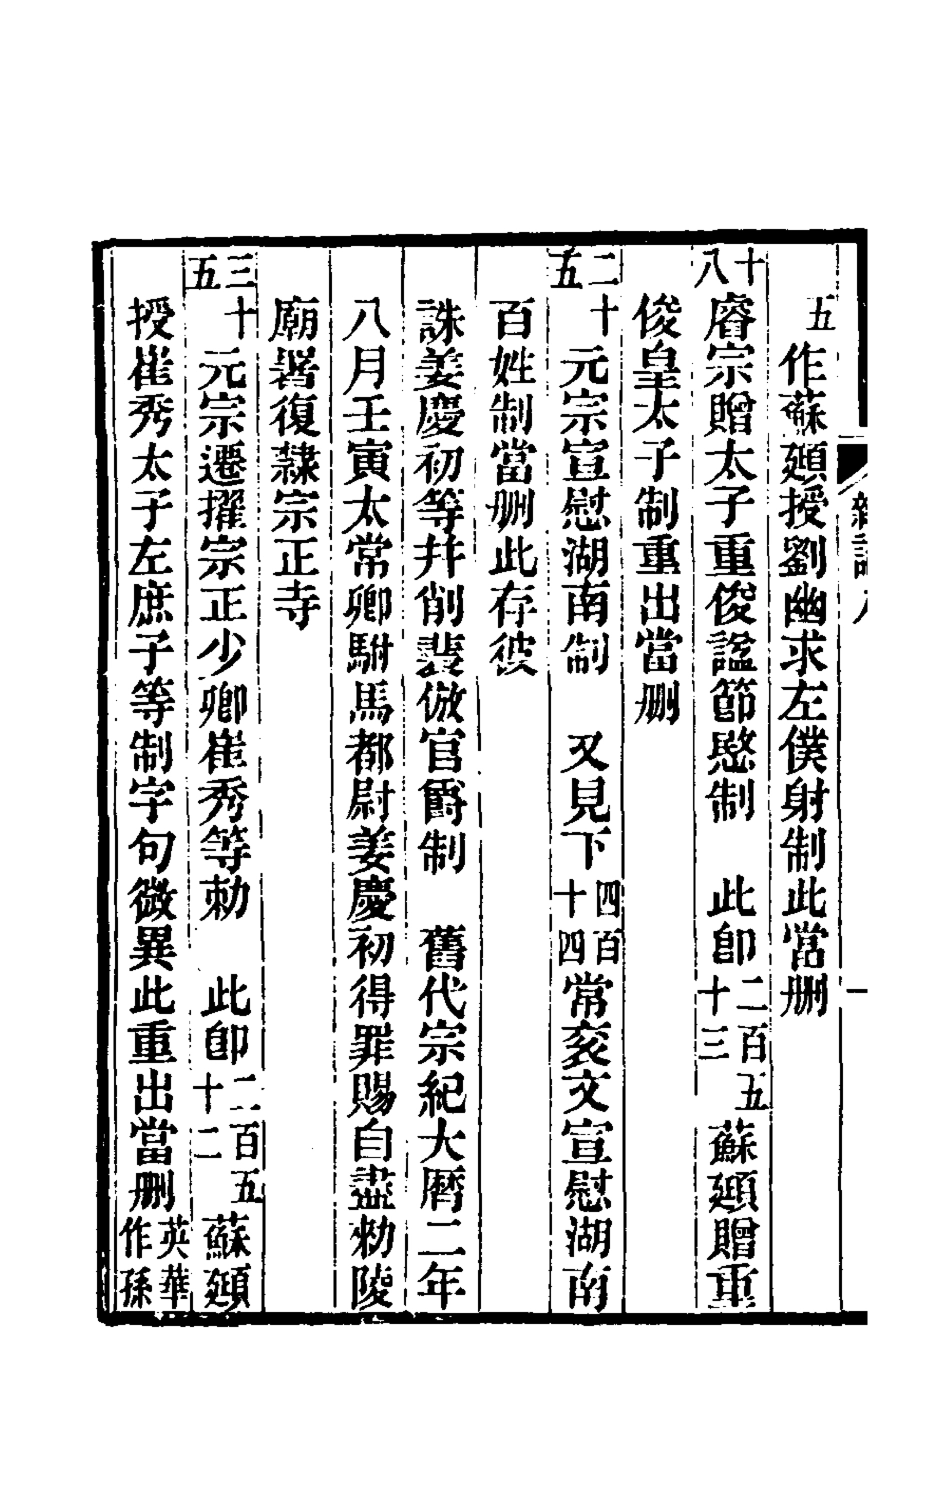 五作蘇頲授劉幽求左僕射制此當刪
十八睿宗贈太子重俊諡節愍制　此卽二百五十三蘇頲贈重
俊皇太子制重出當刪
二十五元宗宣慰湖南制　又見下四百十四常袞文宣慰湖南
百姓制當刪此存彼
誅姜慶初等幷削裴倣官爵制　舊代宗紀大曆二年
八月壬寅太常卿駙馬都尉姜慶初得罪賜自盡勑陵
廟署復隸宗正寺
三十五元宗遷擢宗正少卿崔秀等勑　此卽二百五十二蘇頲
授崔秀太子左庶子等制字句微異此重出當刪英華作孫